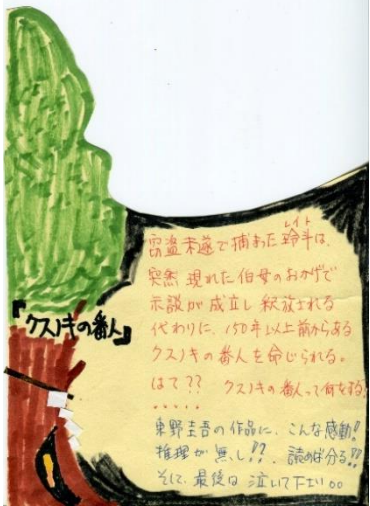 『クスノキの番人』
レイト
窃盗未遂で捕まった玲斗は、
突然現れた伯母のおかげで
示談が成立し釈放される
代わりに、150年以上前からある
クスノキの番人を命じられる。
はて?? クスノキの番人って何をする!
・・・・・
東野圭吾の作品に、こんな感動!
推理が無し!?. 読めば分る!!
そして、最後は泣いて下さい。。